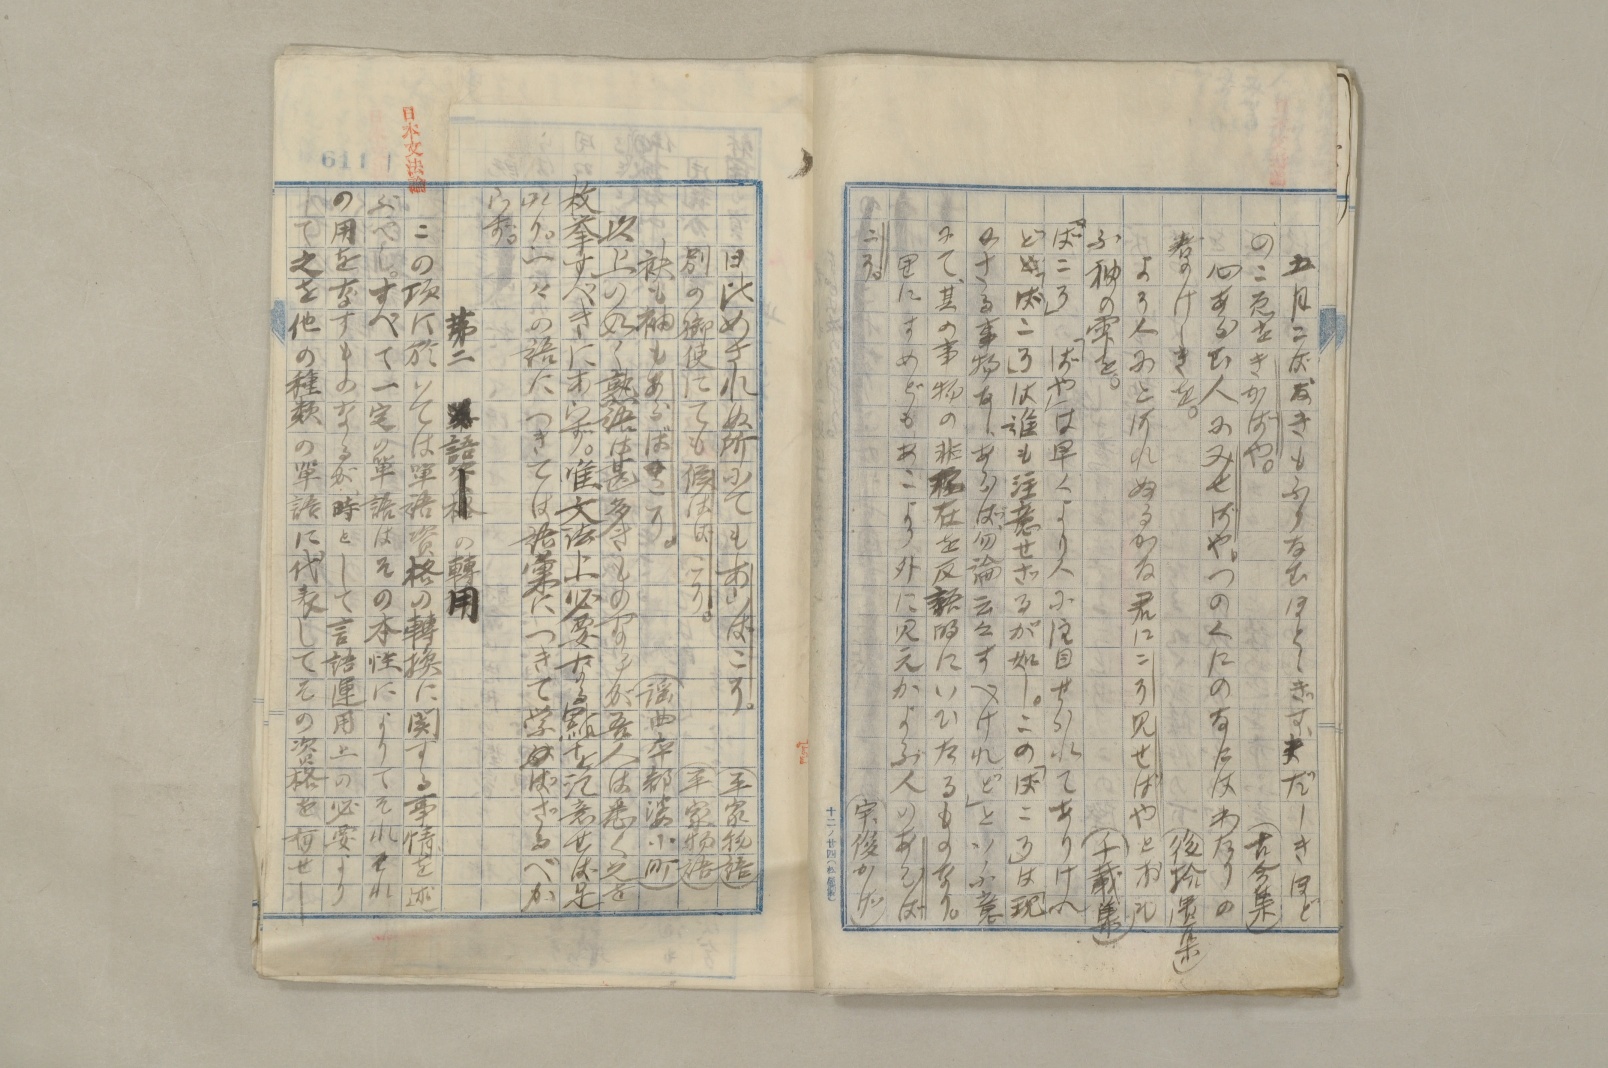 五月こばなきもふりなむほとゝぎすまだしきほど
のこゑをきかばや。(古今集)
心あらむ人にみせばや。つのくにのなにはわたりの
春のけしきを。(後拾遺集)
よそ人にとはれぬるかな君にこそ見せばやとおも
ふ袖の雫を。(千載集)
「ばこそ」「ばや」は早くより人に注目せられてありけ
ど「ばこそ」は誰も注意せざるが如し。この「ばこそ」は「現
にさる事物なし、あらば勿論云々すべけれど」といふ意
にて、其の事物の非存在を反語的にいひたるものなり。
里にすめどもあこより外に見えかよふ人のあらば
こそ。(宗俊かげ)
日比めされぬ所にてもあらばこそ。(平家物語)
別の御使にても候はばこそ。(平家物語)
袂も袖もあらばこそ。(謡曲卒都婆小町)
以上の如く熟語は甚多きものなるが吾人は悉く之を
枚挙すべきにあらず。唯文法上必要なる点を注意せば足
れり。一々の語につきては語彙につきて学ばざるべか
らず。
第二 語の轉用
この項に於いては單語資格の轉換に関する事情を述
ぶべし。すべて一定の單語はその本性によりてそれ〳〵
の用をなすものなるが、時として言語運用上の必要より
して之を他の種類の單語に代表してその資格を有せし
日本文法論
611